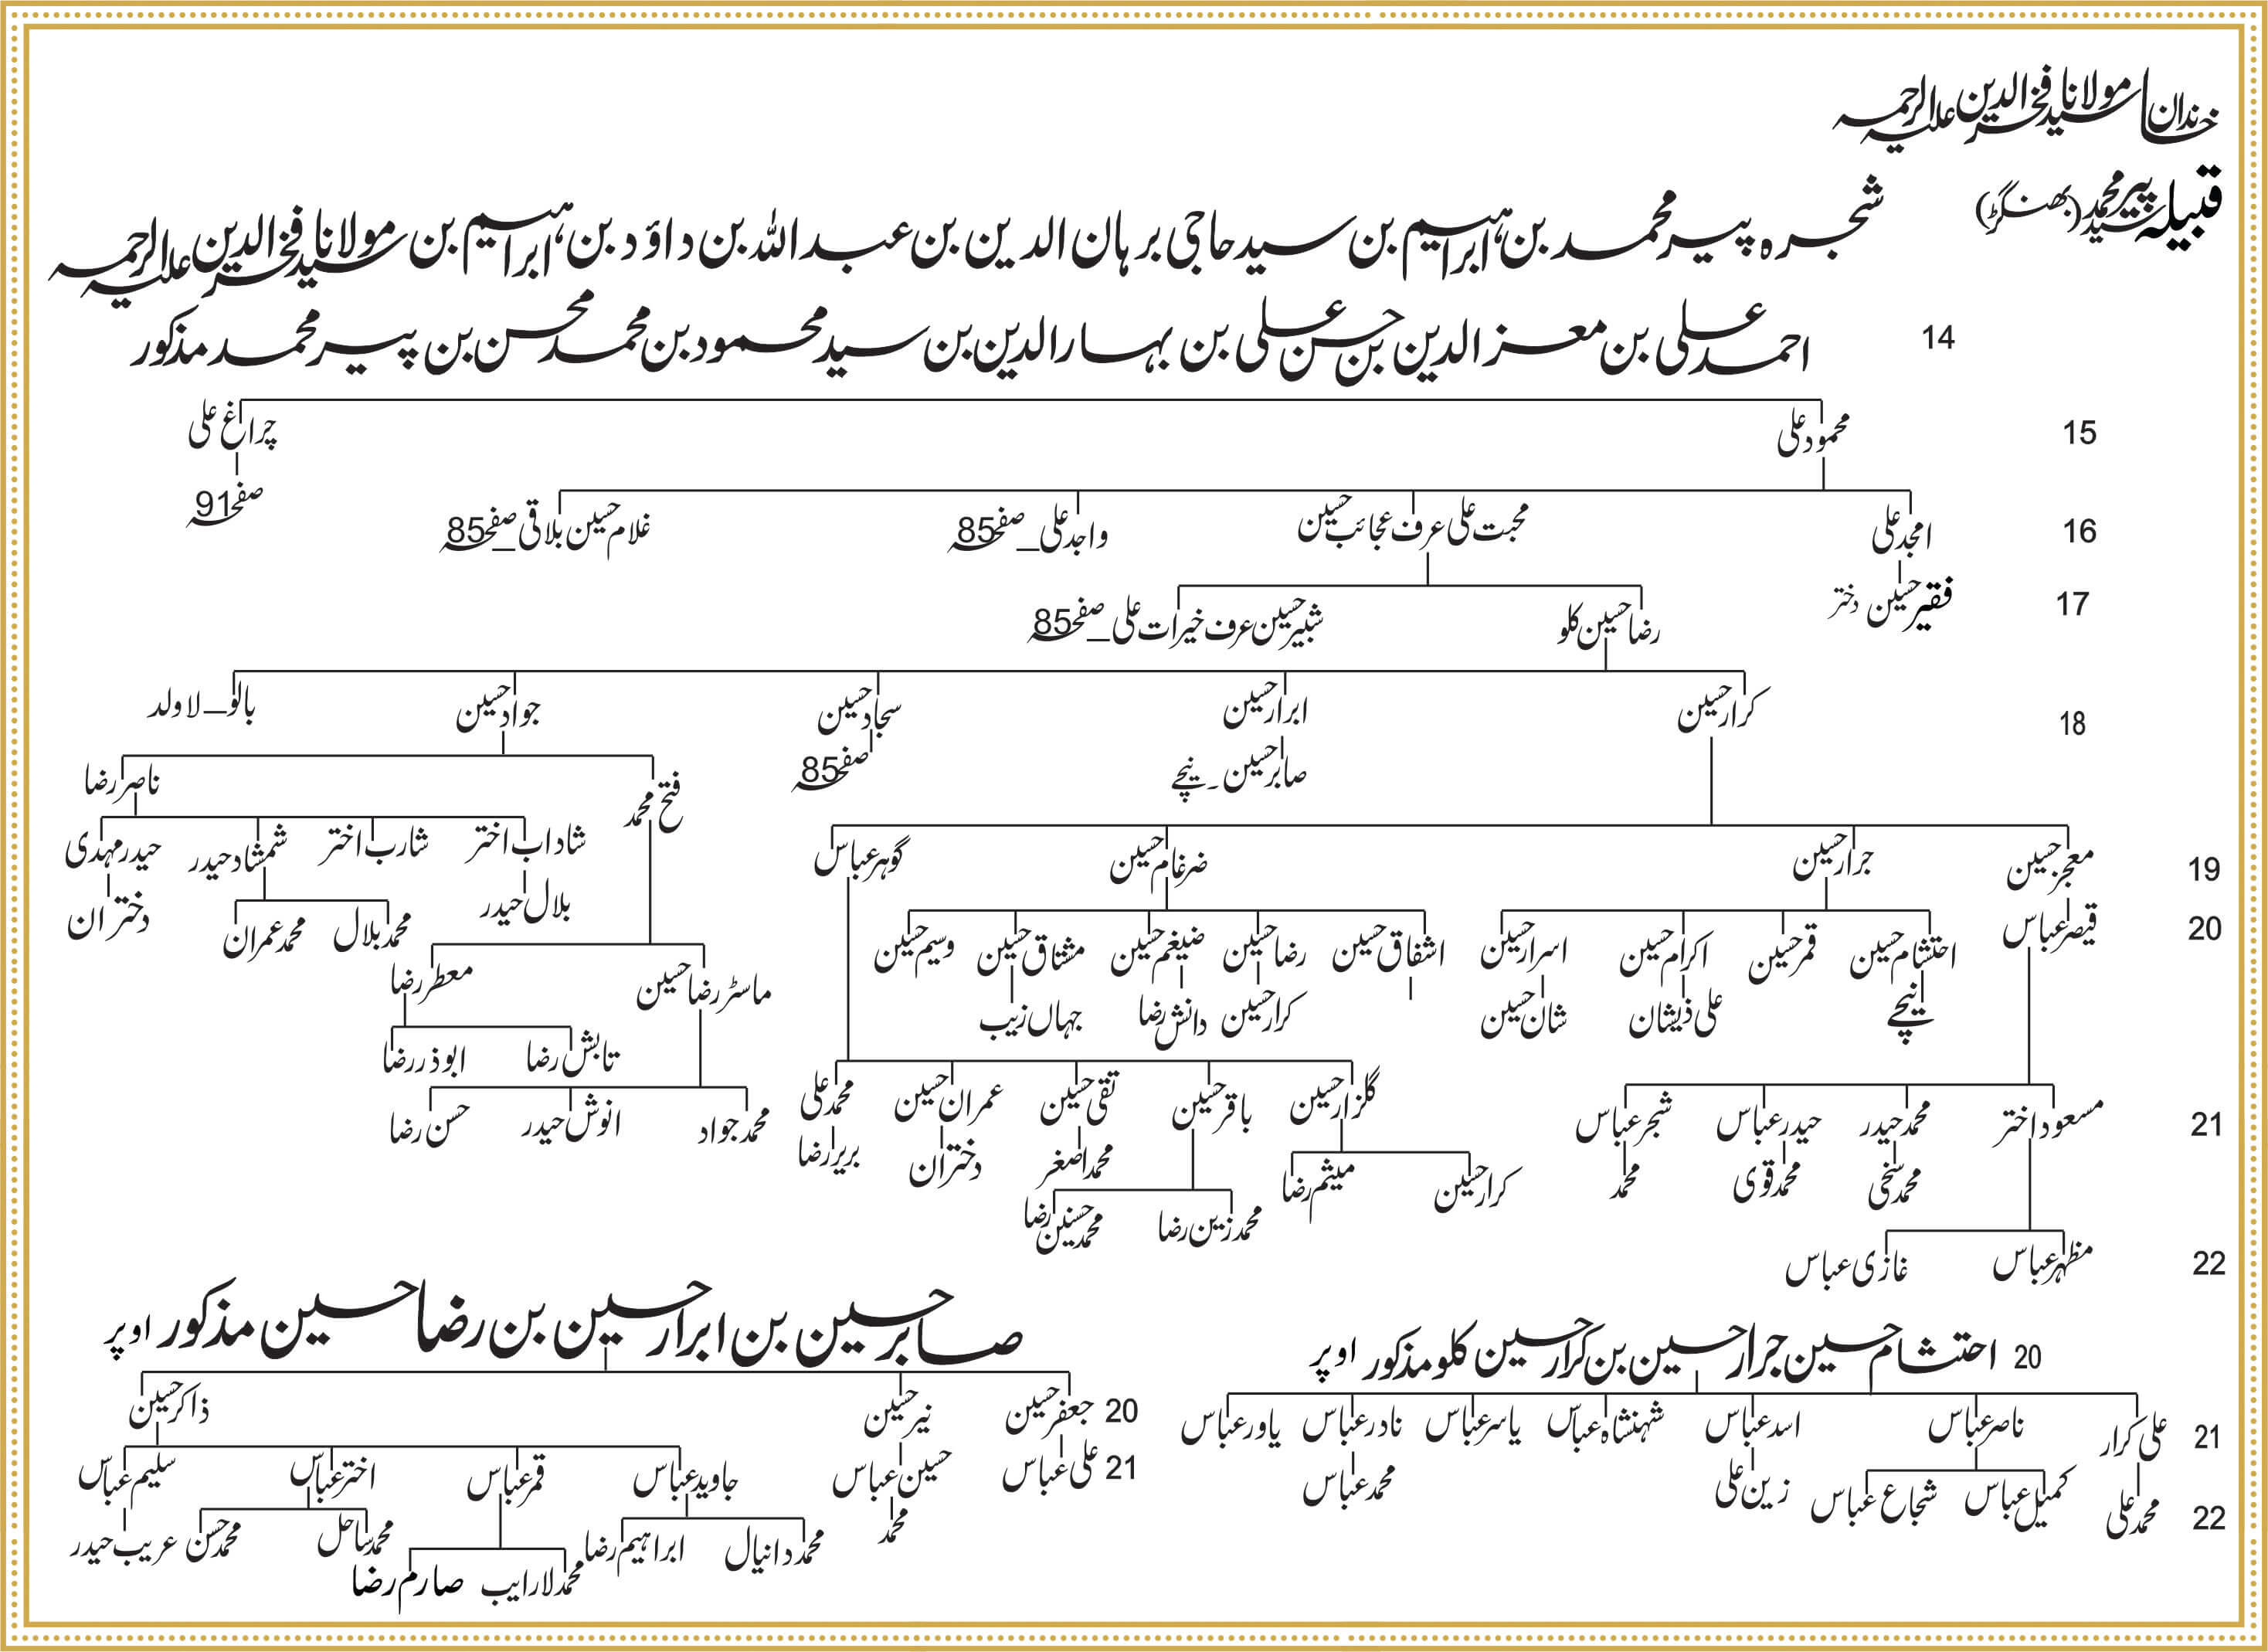 خاندان مولانا سید فخرالدین علیہ الرحمہ
قبیلہ سید پیر محمد (بھنگڑ)
شجرہ پیر محمد بن ابراہیم بن سید حاجی برہان الدین بن عبداللہ بن داؤد بن ابراہیم بن مولانا سید فخرالدین علیہ الرحمہ
14 احمد علی بن معز الدین بن حسن علی بن بہار الدین بن سید محمود بن محمد محسن بن پیر محمد مذکور
15 محمود علی چراغ علی
صفحہ 91
16 امجد علی محبت علی عرف عجائب حسین واجد علی_صفحہ 85 غلام حسین بلاقی_صفحہ 85
17 فقیر حسین دختر رضا حسین کلو شبیر حسین عرف خیرات علی_صفحہ 85
18 کرار حسین ابرار حسین سجاد حسین جواد حسین بالو_لاولد
صابر حسین۔نیچے صفحہ 85
فتح محمد ناصر رضا
شاداب اختر شارب اختر شمشاد حیدر حیدر مہدی
بلال حیدر محمد بلال محمد عمران دختران
19 معجز حسین جرار حسین ضرغام حسین گوہر عباس
20 قیصر عباس احتشام حسین قمر حسین اکرام حسین اسرار حسین اشفاق حسین رضا حسین ضیغم حسین مشتاق حسین وسیم حسین
ماسٹر رضا حسین معطر رضا
نیچے علی ذیشان شان حسین کرار حسین دانش رضا جہاں زیب
تابش رضا ابوذر رضا
21 مسعود اختر محمد حیدر حیدر عباس شجر عباس گلزار حسین باقر حسین تقی حسین عمران حسین محمد علی
محمد جواد انوش حیدر حسن رضا
محمد سخی محمد قوی محمد کرار حسین میثم رضا محمد اصغر دختران بریر رضا
محمد زین رضا محمد حسنین رضا
22 مظہر عباس غازی عباس
20 احتشام حسین جرار حسین بن کرار حسین کلو مذکور اوپر
21 علی کرار ناصر عباس اسد عباس شہنشاہ عباس یاسر عباس نادر عباس یاور عباس
22 محمد علی کمیل عباس شجاع عباس زین علی محمد عباس
صابر حسین بن ابرار حسین بن رضا حسین مذکور اوپر
20 جعفر حسین نیر حسین ذاکر حسین
21 علی عباس حسین عباس جاوید عباس قمر عباس اختر عباس سلیم عباس
محمد محمد دانیال ابراہیم رضا محمد لاراییب صارم رضا محمد ساحل محمد حسن عریب حیدر